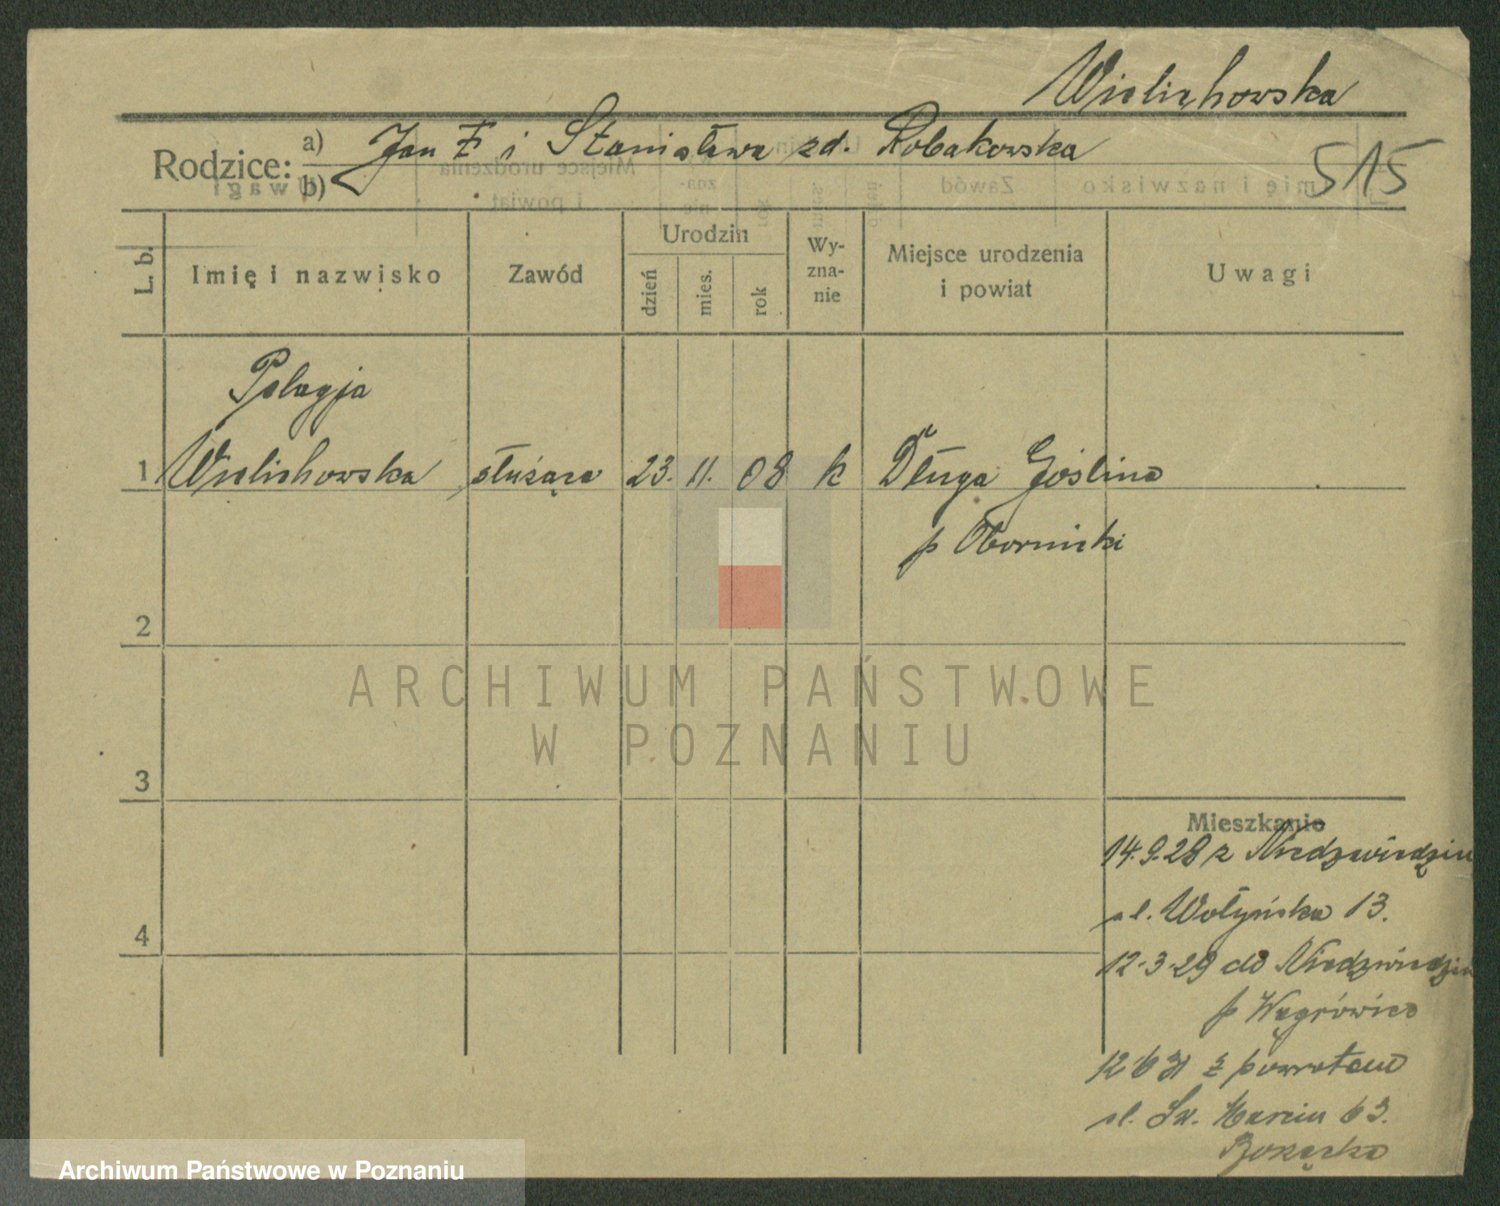 Wielichowska
Rodzice: a) Jan † i Stanisława zd. Robakowska
b)
515
L. b. Imię i nazwisko Zawód Urodzin dzień mies. rok Wy-zna-nie Miejsce urodzenia i powiat Uwagi
Pelagja
1 Wielichowska służąca 23. 11. 08 k Długa Goślina
p Obornicki
2
ARCHIWUM PAŃSTWOWE
W POZNANIU
3
Mieszkanie
14.9.28 z Niedzwiedzin
ul. Wołyńska 13.
4
12.3.29 do Niedzwiedzin
p Wągrówiec
12 6 31 z powrotem
ul. Św. Marcin 63.
Archiwum Państwowe w Poznaniu